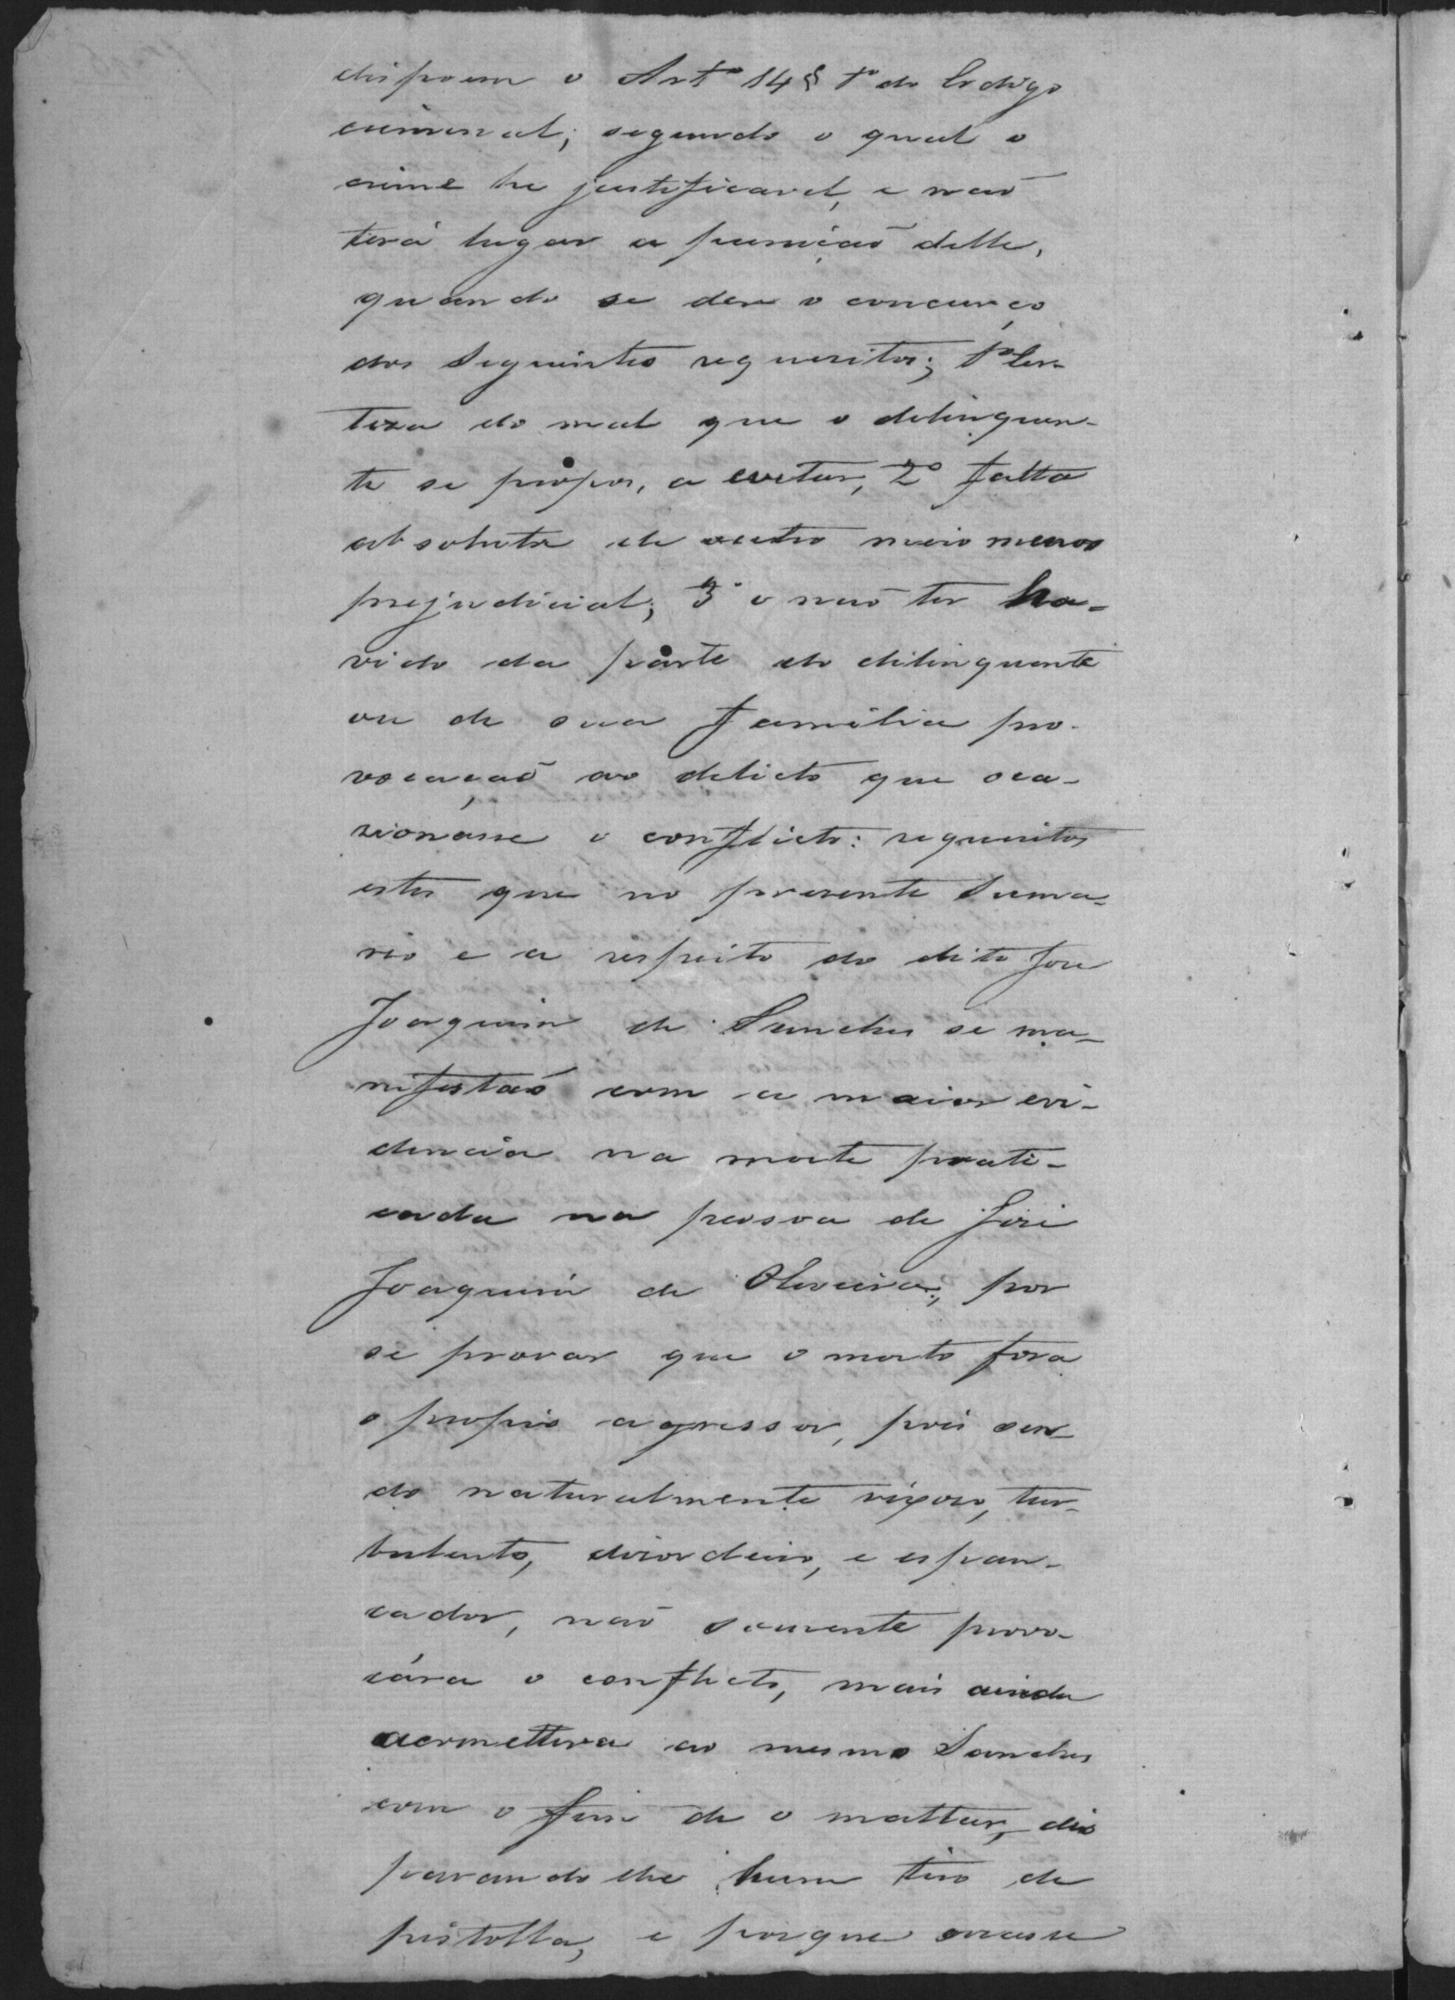 dispoem o Artº 14 § 1º do Codigo
criminal; segundo o qual o
crime he justificavel, e naõ
terá lugar a puniçaõ delle,
quando se der o concurço
dos seguintes requesitos; 1º Cer-
teza do mal que o delinquen-
te se propos, a evitar, 2º falta
absoluta de outro meio menos
prejudicial; 3º o naõ ter ha-
vido da parte do dilinquente
ou de sua familia pro-
vocaçaõ ao delicto que oca-
zionasse o conflicto: requesitos
estes que no presente Suma-
rio e a respeito do dito Jose
Joaquim de Sanches se ma-
nifestaõ com a maior evi-
dencia na morte prati-
cada na pessoa de José
Joaquim de Oliveira; por
se provar que o morto fora
o proprio agressor, pois sen-
do naturalmente rixoso, tur-
bulento, dezordeiro, e espan-
cador, naõ somente provo-
cára o conflicto, mais ainda
acomettera ao mesmo Sanches
com o fim de o mattar, dis
parando lhe hum tiro de
pistolla, e porque